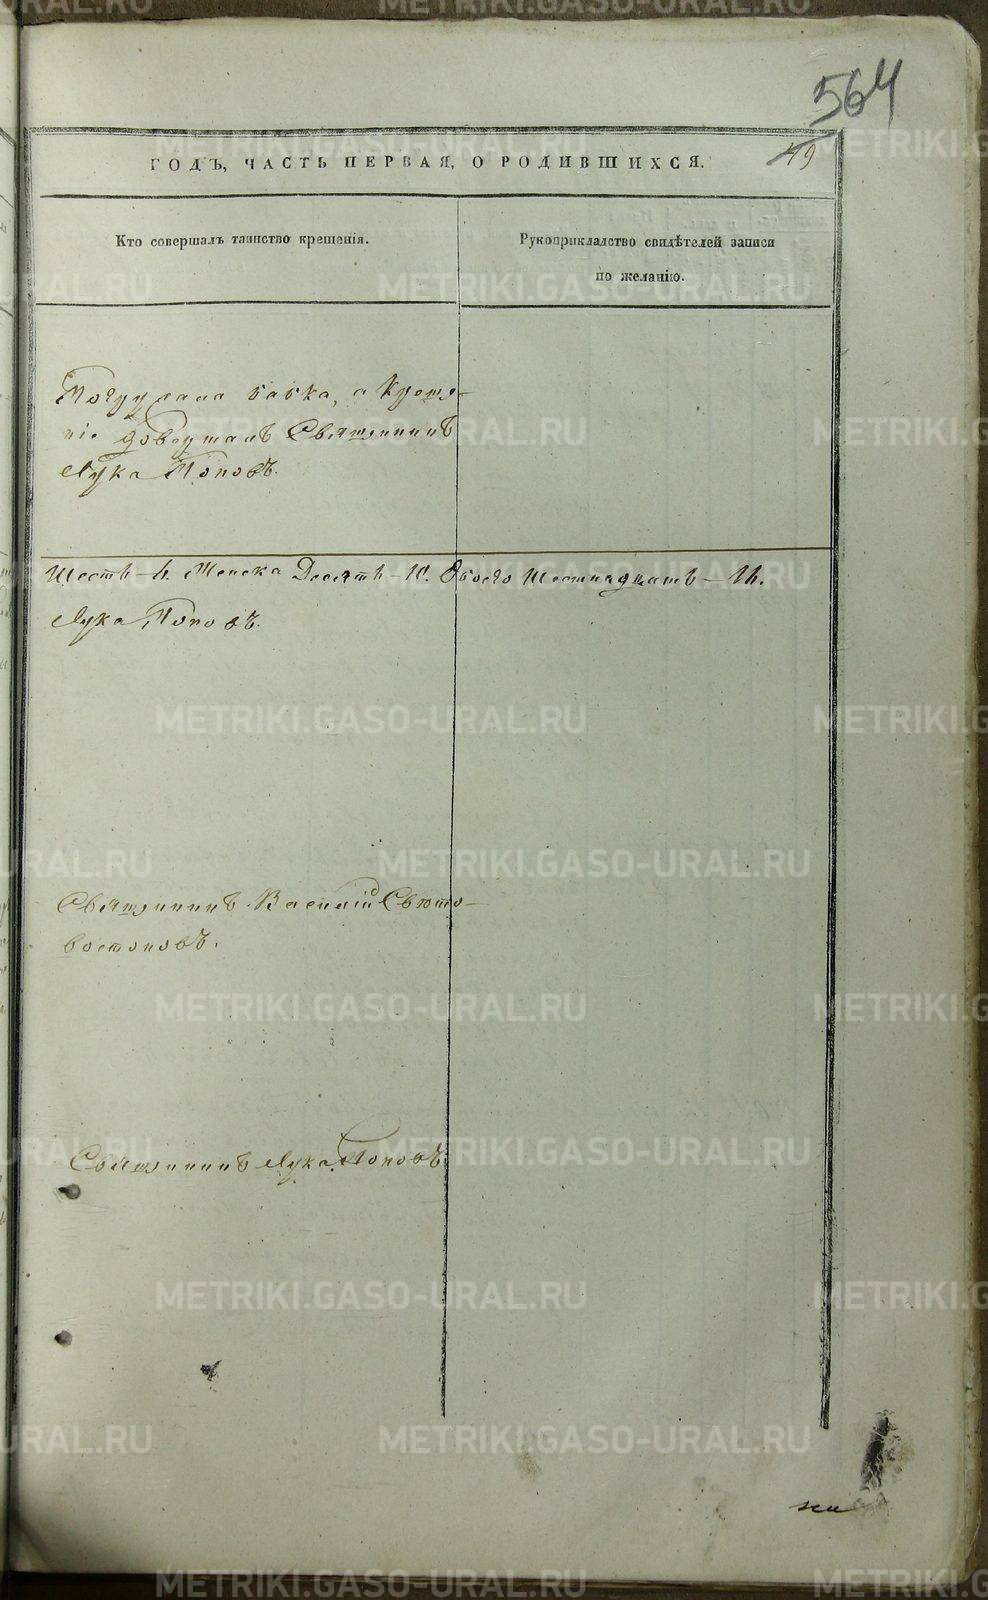 564
49
ГОДЪ, ЧАСТЬ ПЕРВАЯ, О РОДИВШИХСЯ.
Кто совершалъ таинство крещенія.
Рукоприкладство свидѣтелей записи
по желанію.
Погружала бабка, а Креще-
ніе довершалъ Священникъ
Лука Поповъ.
Шесть – 6. Женска Десять – 10. Обоего Шестнадцать – 16.
Лука Поповъ.
Священникъ Василій Свето-
востоковъ.
Священникъ Лука Поповъ.
METRIKI.GASO-URAL.RU